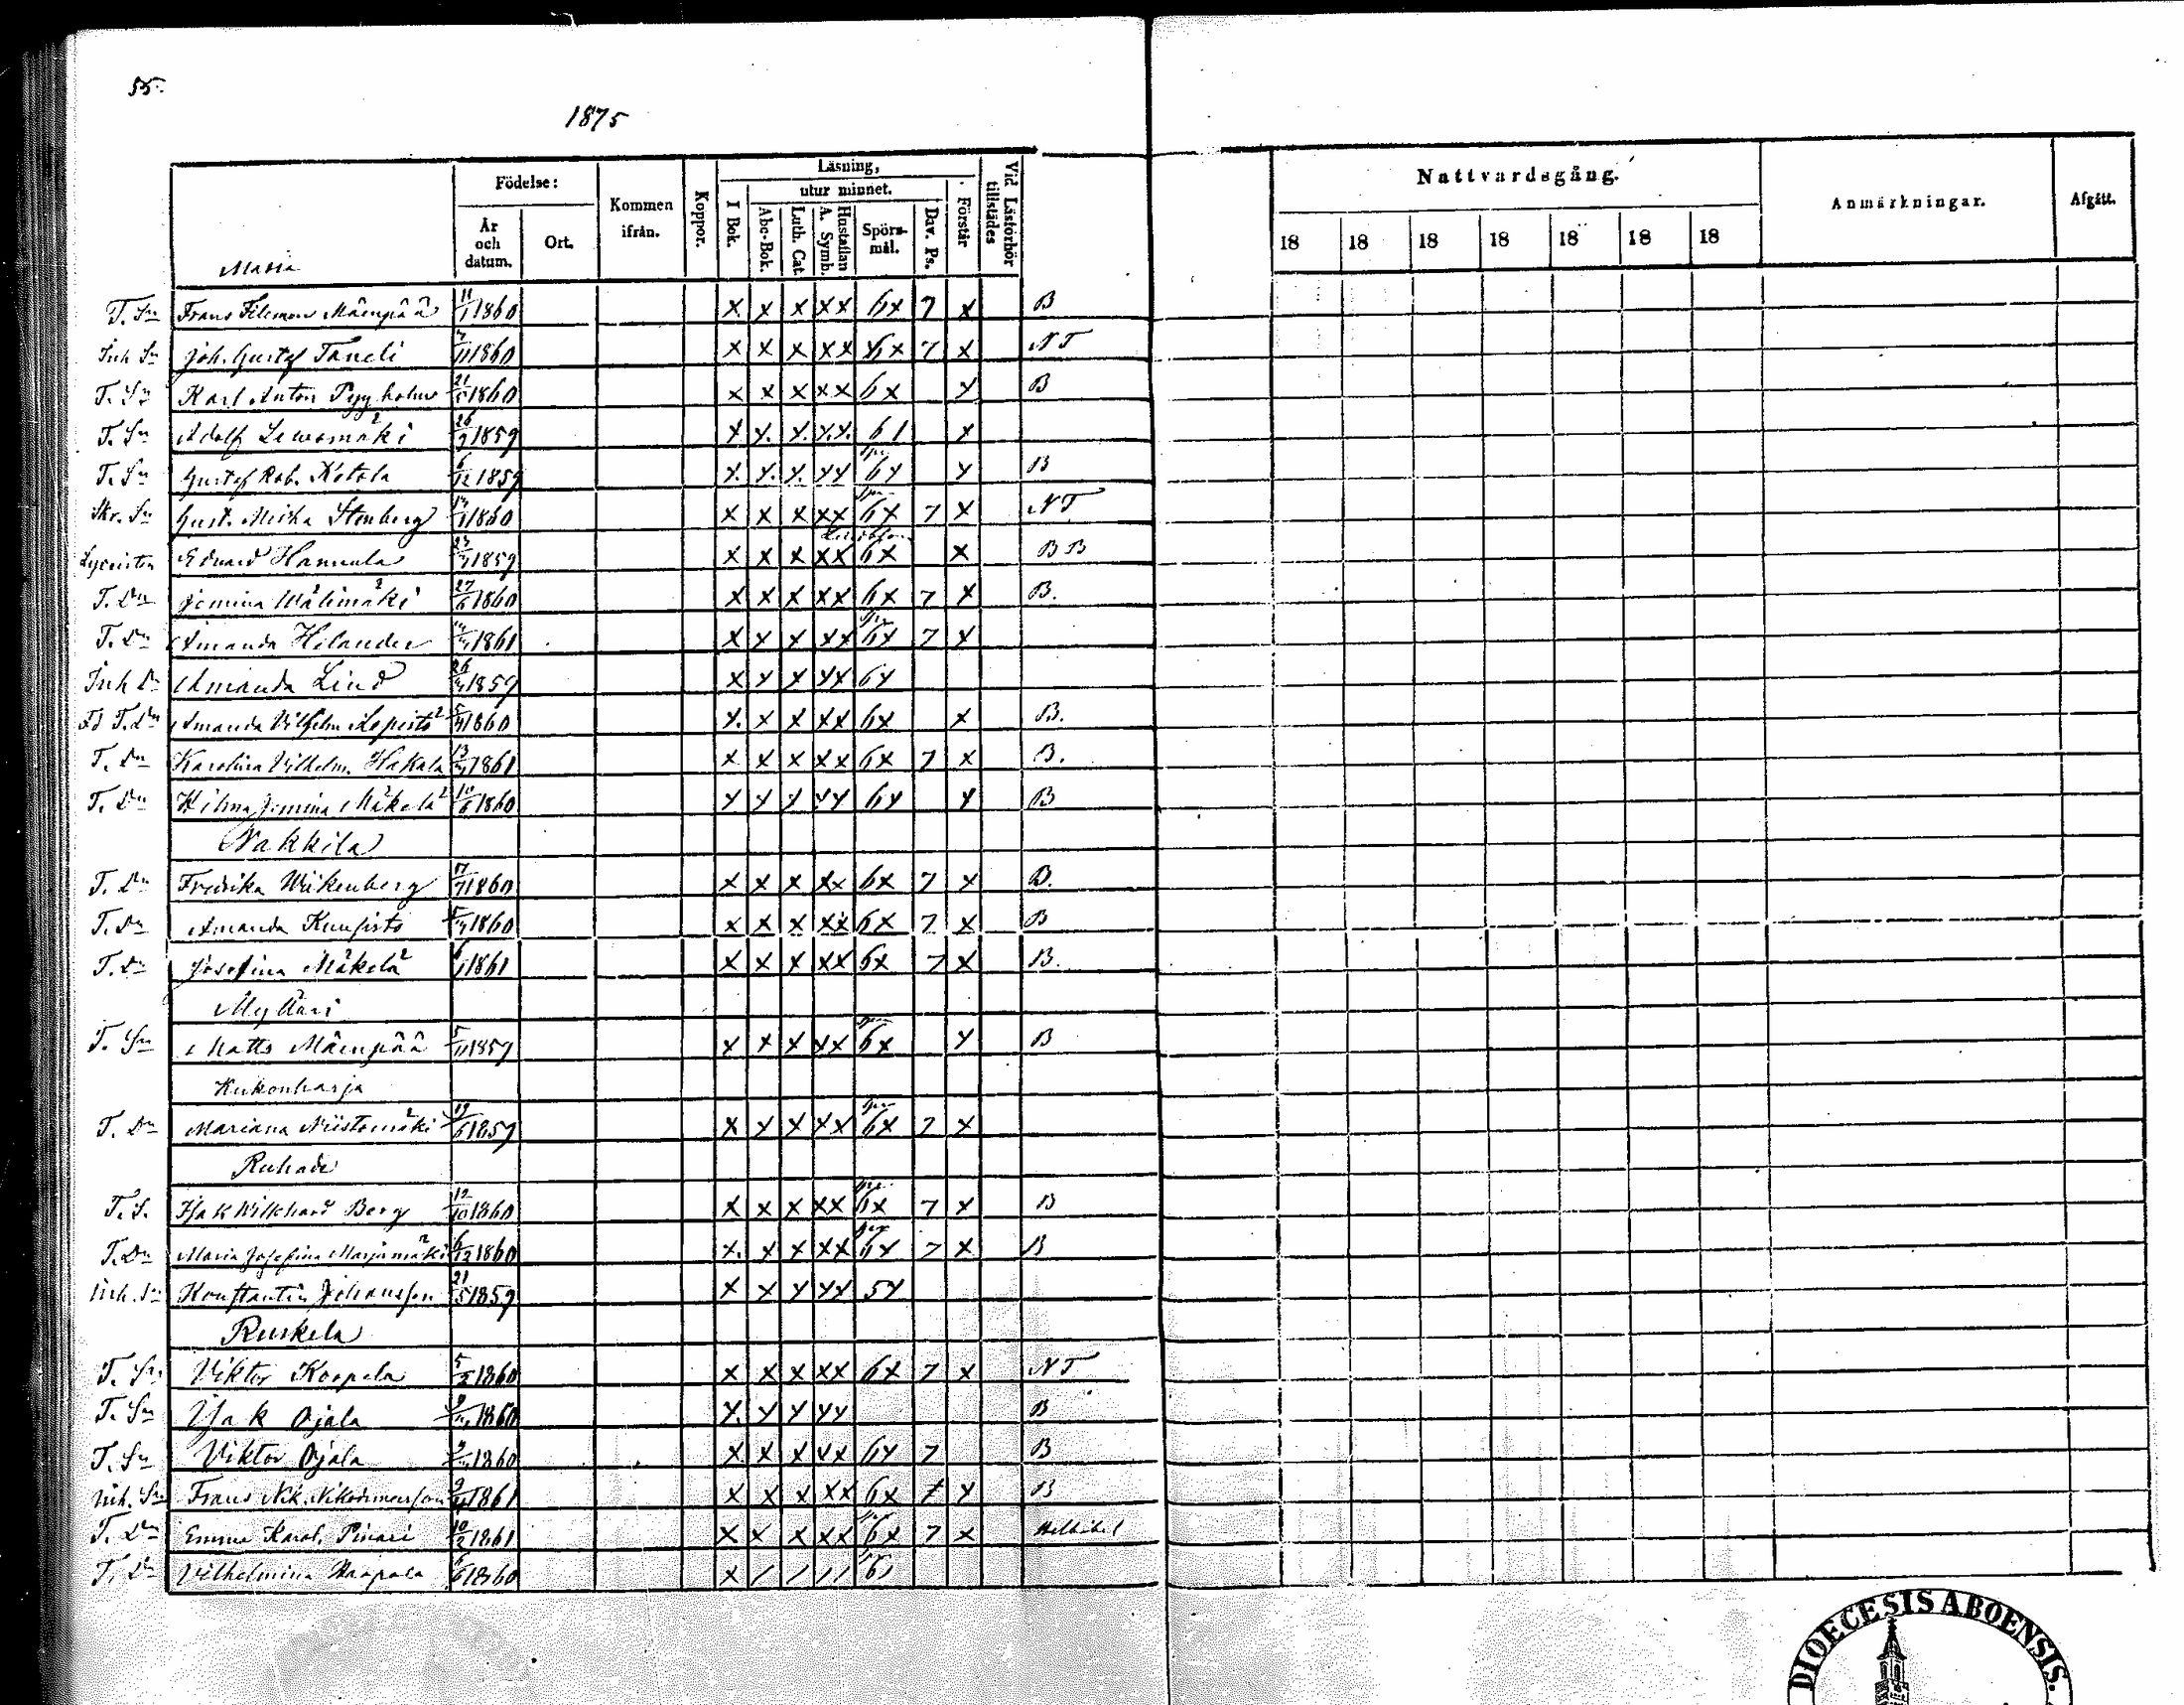 55.
1875
Födelse:
År och datum.
Ort.
Kommen ifrån.
Koppor.
Läsning,
I Bok.
utur minnet.
Abc-Bok.
Luth. Cat.
A. Symb.
Hustaflan
Spörsmål.
Dav. Ps.
Förstår
Vid Läsförhör tillstädes
Nattvardsgång.
18 18 18 18 18 18 18
Anmärkningar.
Afgått.
Maria
T. Sn Frans Filemon Mäenpää 11/1 1860 x x x x x 6x 7 x B
Inh Sn Joh. Gustaf Taneli 7/11 1860 x x x x x 6x 7 x NT
T. Sn Karl Anton Pyyholm 21/5 1860 x x x x x 6x x B
T. Sn Adolf 26/9 1859 x x x x x 61 x
T. Sn Gustaf Rob. Ketola 6/12 1859 x x x x x 6x x B
Skr. Sn Gust. Miska Stenberg 1860 x x x x x 6x 7 x NT
Lyceisten Eduard Hannula 1859 x x x x x 6x x BB
T. Dn Jemina Wälimäki 27/6 1860 x x x x x 6x 7 x B.
T. Dn Amanda Helander 1861 x x x x x 6x 7 x
Inh Dn Amanda Lind 1859 x x x x x 6x
T. Dn Amanda Vilhelm. Lepistö 1860 x x x x x 6x x B.
T. Dn Karolina Vilhelm. Hakala 1861 x x x x x 6x 7 x B.
T. Dn Hilma Jemina Mäkelä 1860 x x x x x 6x x B
Nakkila
T. Dn Fredrika Wikenberg 1860 x x x x x 6x 7 x B.
T. Dn Amanda Kungisto 1860 x x x x x 6x 7 x B
T. Dn Josefina Mäkelä 1861 x x x x x 6x 7 x B.
Myllari
T. Sn Matts Mäenpää 5/11 1857 x x x x x 6x x B
Kukonharja
T. Dn Mariana Niistomäki 19/6 1857 x x x x x 6x 7 x
Ruhade
T. S. Isak Wilkhard Berg 1860 x x x x x 6x 7 x B
T. Dn Maria Josefina Marjamäki 6/12 1860 x x x x x 6x 7 x B
Inh. Sn Konstantin Johansson 21/5 1859 x x x x x 5x
Ruskela
T. Sn Viktor Koopela 1860 x x x x x 6x 7 x NT
T. Sn Isak Ojala 1860 x x x x x B
T. Sn Viktor Ojala 1860 x x x x x 6x 7 B
Inh. Sn Frans Nik. Nikodemusson 1861 x x x x x 6x x x B
T. Dn Emma Karol. Pinari 10/2 1861 x x x x x 6x 7 x
T. Dn Vilhelmina Haapala 1860 x / / / / 61
DIOECESIS ABOENSIS.